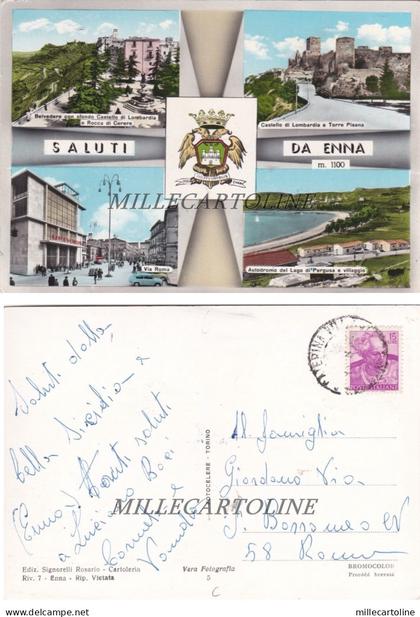 Belvedere con sfondo Castello di Lombardia
e Rocca di Cerere
Castello di Lombardia e Torre Pisana
SALUTI
DA ENNA
m. 1100
MILLECARTOLINE
Via Roma
Autodromo del Lago di Pergusa e villaggio
Saluti dalla
bella Sicilia
(Enna) Tanti saluti
15
POSTE ITALIANE
FOTOCELERE - TORINO
Al Famiglia
Giordano Via
S. Borromeo
58 Roma
MILLECARTOLINE
Ediz. Signorelli Rosario - Cartoleria
Riv. 7 - Enna - Rip. Vietata
Vera Fotografia
5
BROMOCOLOR
C
https://www.millecartoline.com